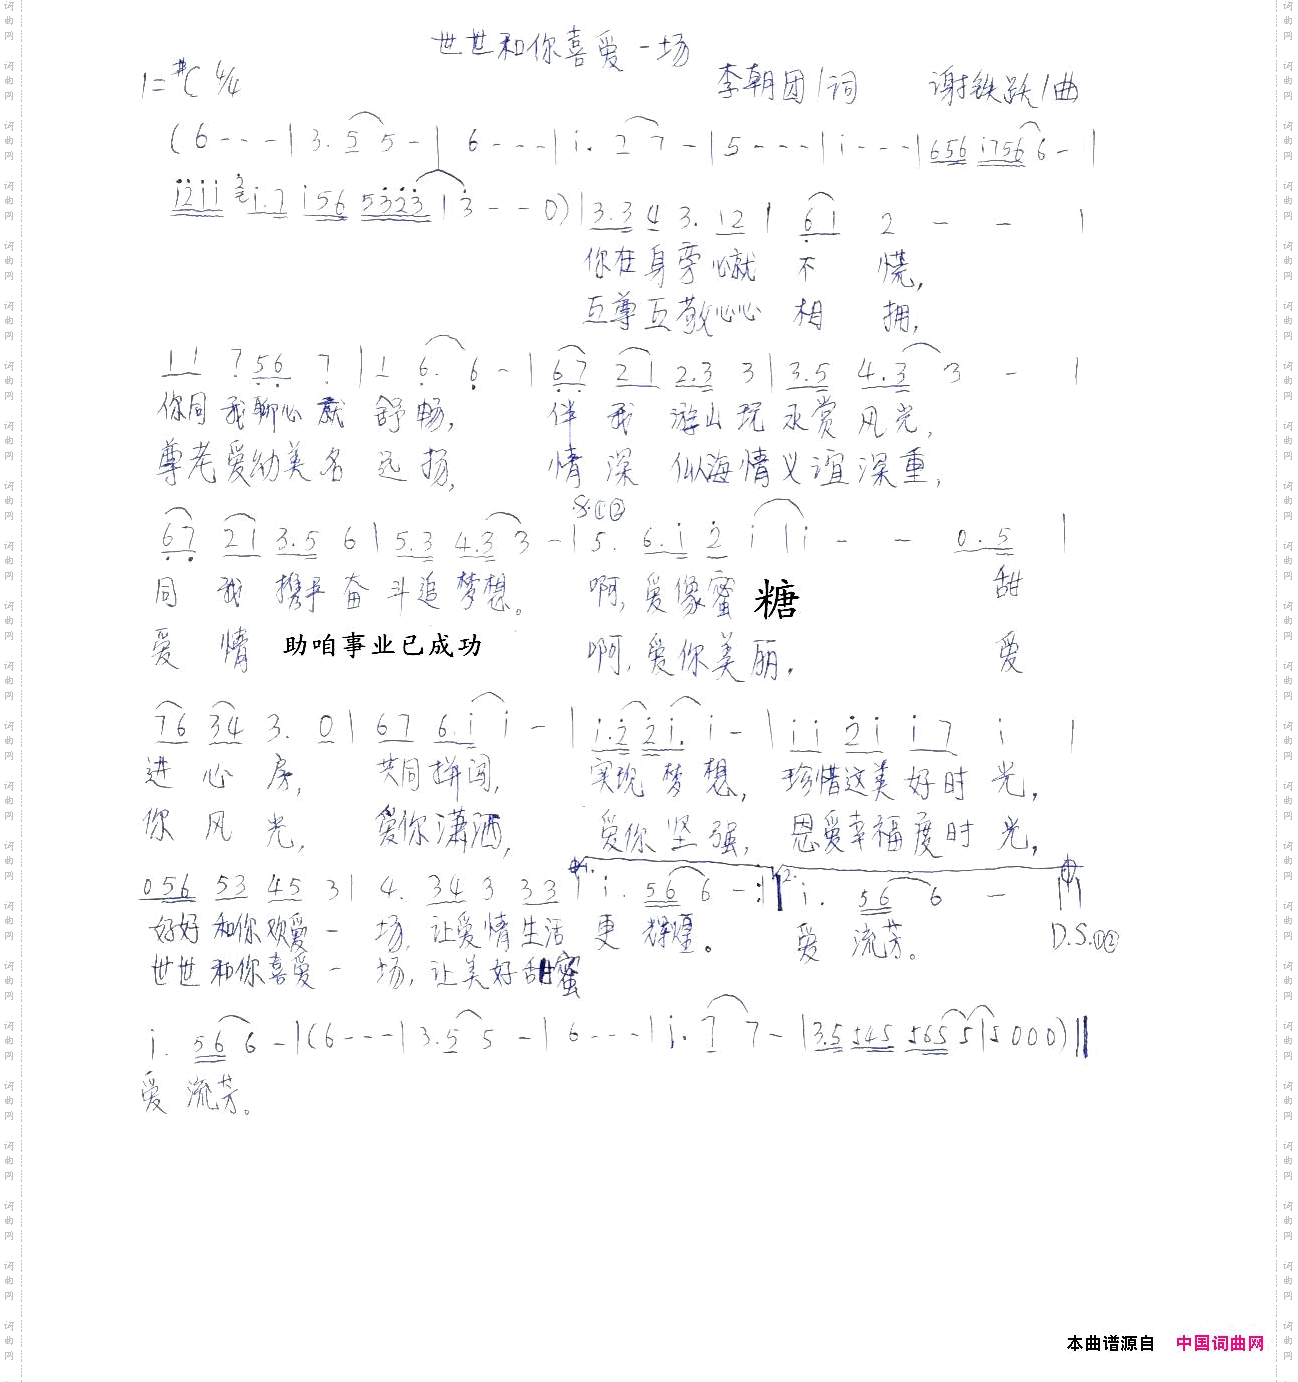 世世和你喜爱一场
1=#C 4/4 李朝团/词 谢铁跃/曲
(6 - - - | 3. 5 5 - | 6 - - - | i. 2 7 - | 5 - - - | i - - - | 656 i756 6 - |
i2ii 2 i.7 i56 5323 | 3 - - 0) | 3.3 4 3. 12 | 61 2 - - |
你在身旁心就 不 慌,
互尊互敬心心 相 拥,
11 7 56 7 | 1 6. 6 - | 67 21 2.3 3 | 3.5 4.3 3 - |
你同我聊心就 舒畅, 伴 我 游山玩水赏风光,
尊老爱幼美名 远扬, 情深 似海情义谊深重,
S.①②
67 21 3.5 6 | 5.3 4.3 3 - | 5. 6.i 2 i | i - - 0.5 |
同 我 携手奋斗追梦想。 啊,爱像蜜糖 甜
爱 情 助咱事业已成功 啊,爱你美丽, 爱
76 34 3. 0 | 67 6.i i - | i.2 2i. i - | ii 2i i7 i |
进心房, 共同拼闯, 实现梦想, 珍惜这美好时光,
你风光, 爱你潇洒, 爱你坚强, 恩爱幸福度时光,
056 53 45 3 | 4. 34 3 33 | 1. i. 56 6 - :| 2. i. 56 6 - ||
好好和你欢爱一 场, 让爱情生活 更 辉煌。 爱 流芳。 D.S.①②
世世和你喜爱一 场, 让美好甜蜜
i. 56 6 - | (6 - - - | 3. 5 5 - | 6 - - - | i. 7 7 - | 3.5 545 565 5 | 5 0 0 0) ||
爱 流芳。
本曲谱源自 中国词曲网
词曲网